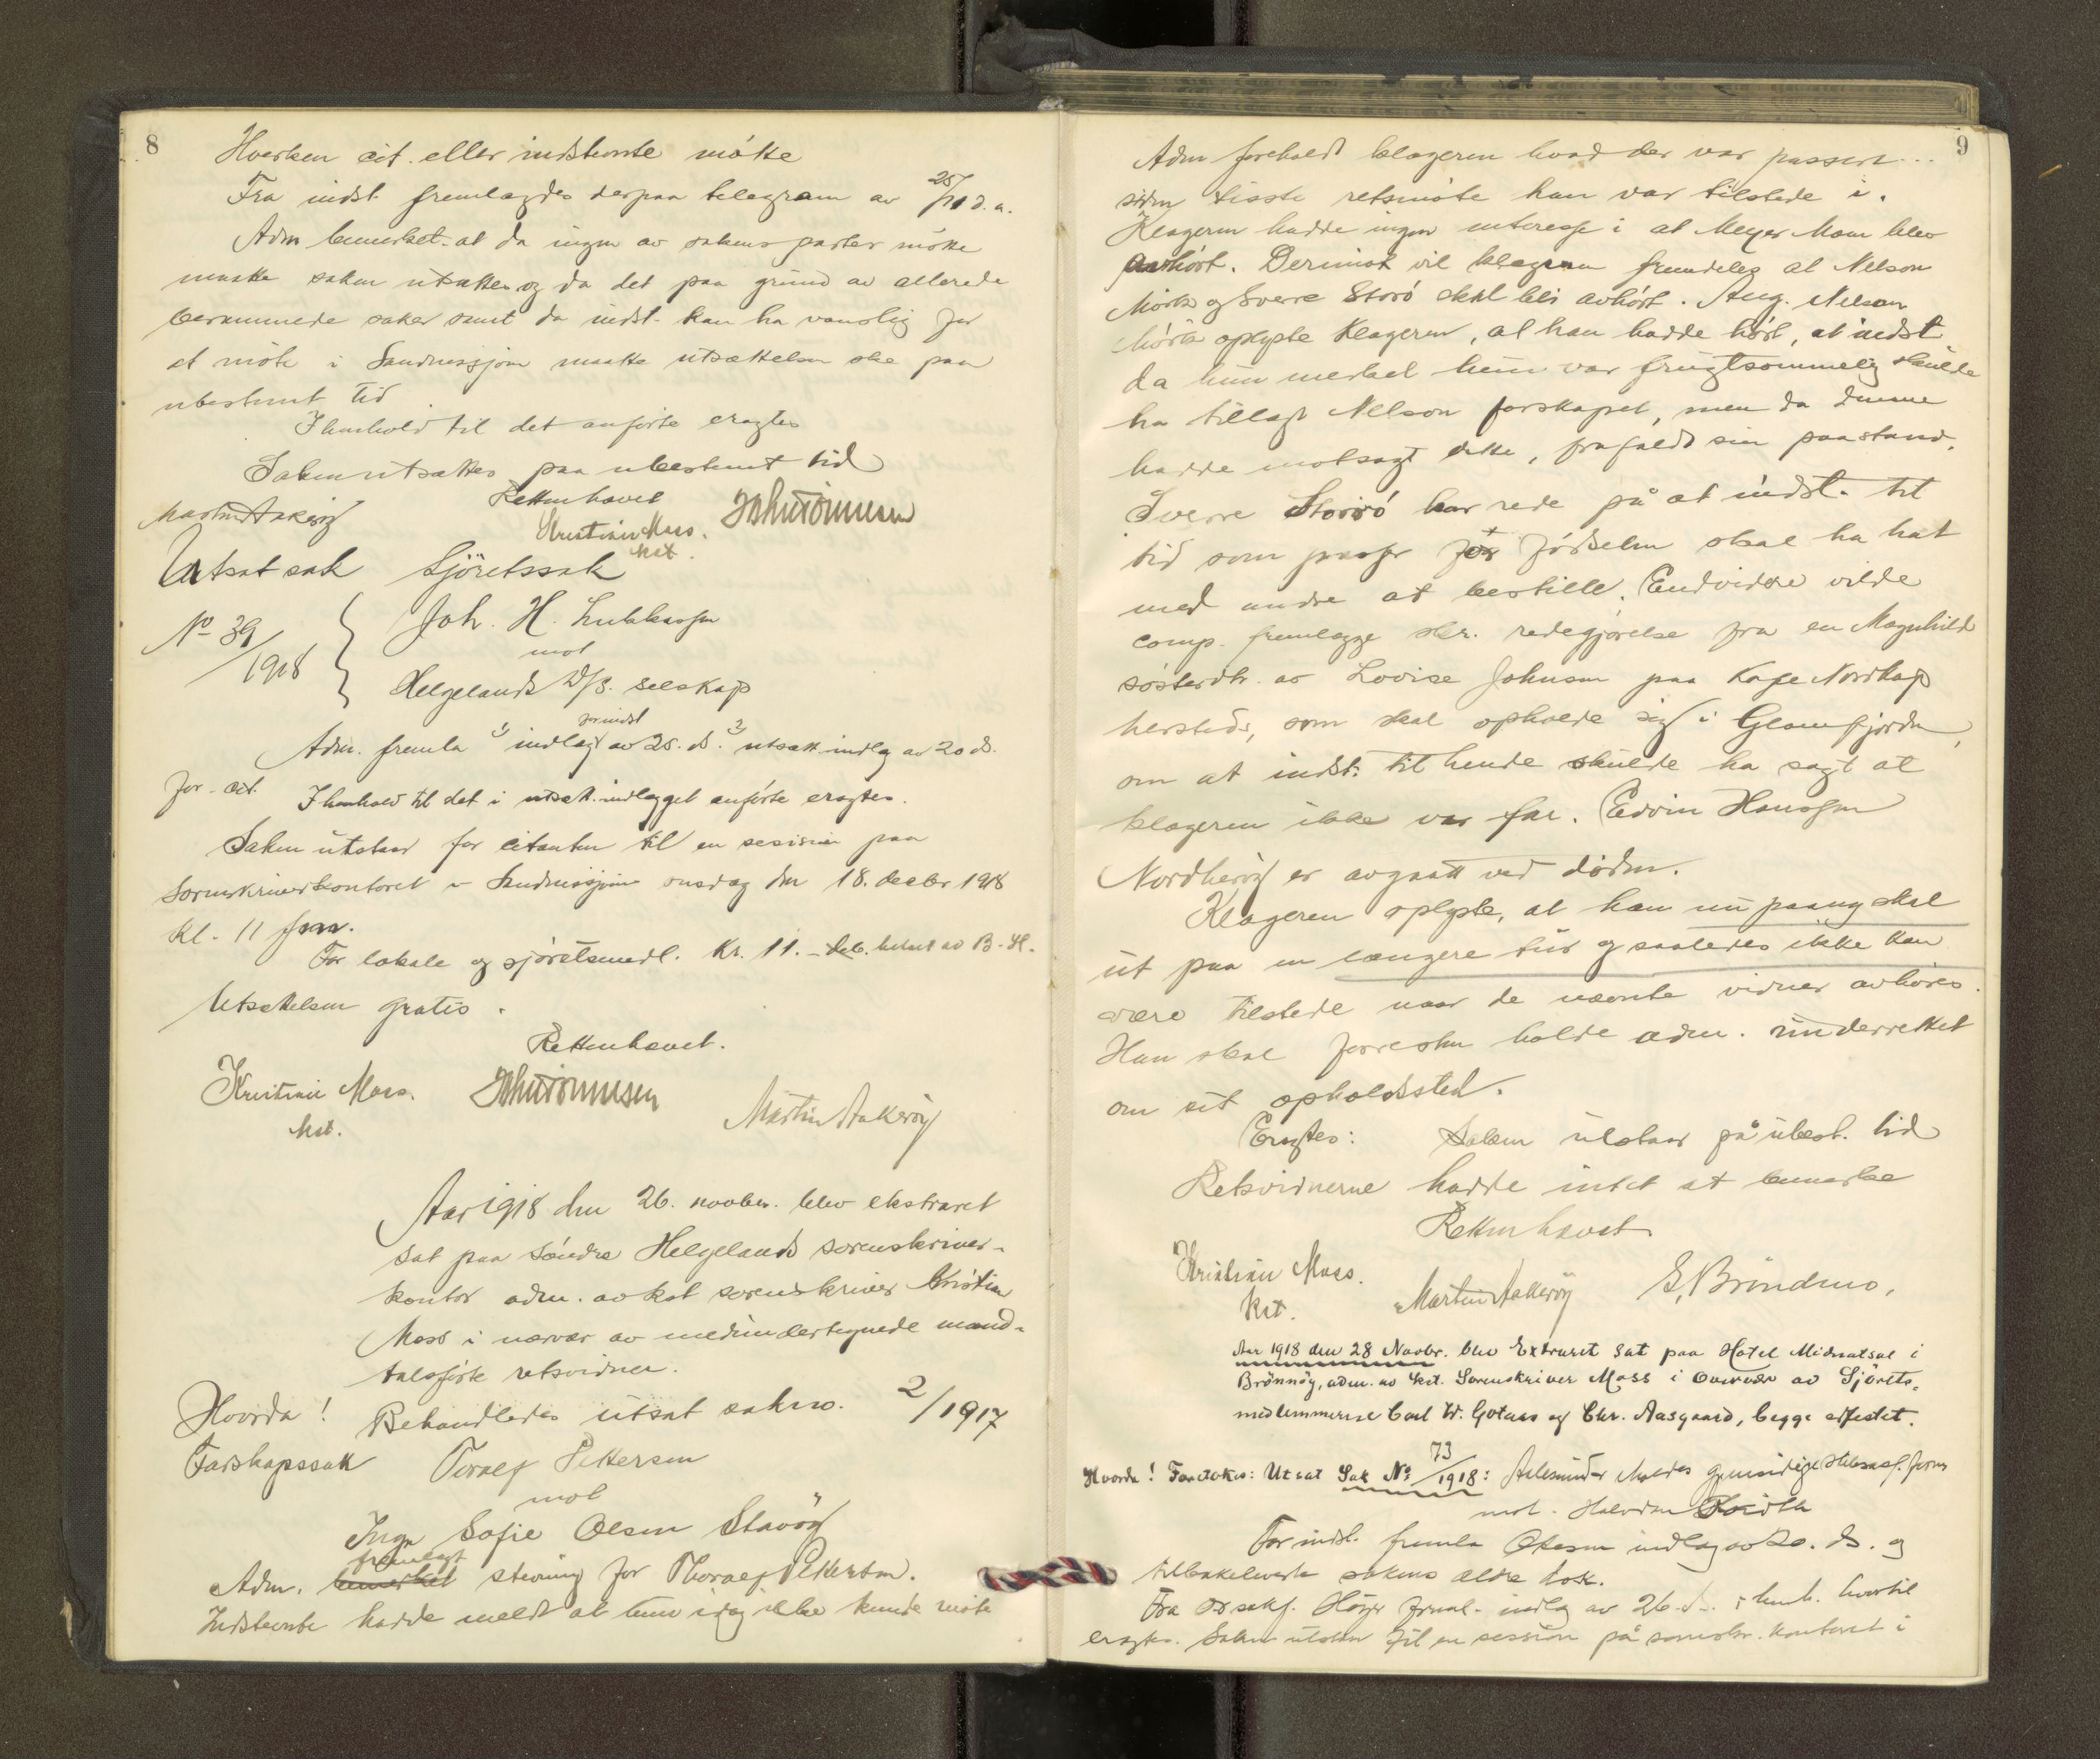 8
Hverken cit. eller indstevnte møtte
Fra indst. fremlagdes derpaa telegram av 25/11 d.a.
Adm. bemerket at da ingen av sakens parter møtte
maatte saken utsættes og da det paa grund av allerede
berammede saker samt da indst. kan ha vanslig for
at møte i Sandnessjøen maatte utsættelsen ske paa
ubestemt tid
I henhold til det anførte eragtes
Saken utsættes paa ubestemt tid
Retten hævet
Martin Aakerøy Kristian Moss. Joh Tønnesen
kst.
Utsat sak Sjöretssak
No 39/1918 Joh. H. Lukkassen
mot
Helgelands D/S. selskap
Adm. fremla 1) indlæg for indst av 25. ds. 2) utsætt. indlæg av 20 ds.
for cit. I henhold til det i utsæt. indlægget anførte eragtes.
Saken utstaar for citanten til en session paa
Sorenskriverkontoret i Sandnessjøen onsdag den 18. decbr 1918
kl. 11 fm.
For lokale og sjøretsmedl. Kr. 11.- deb. betalt av B-H.
Utsættelsen gratis.
Retten hævet.
Kristian Moss. Joh Tønnesen Martin Aakerøy
kst.
Aar 1918 den 26. novbr. blev ekstraret
sat paa Söndre Helgelands sorenskriver-
kontor adm. av kst sorenskriver Kristian
Moss i nærvær av medundertegnede mand-
talsførte retsvidner.
Hvorda! Behandledes utsat sak no. 2/1917
Farskapssak Toralf Pettersen
mot
Inga Sofie Olsen Stavöy
Adm. bemerket fremlagt stevning for Thoralf Pettersen.
Indstevnte hadde meldt at hun idag ikke kunde møte
9
Adm foreholdt klageren hvad der var passert ...
siden sidste retsmøte han var tilstede i.
Klageren hadde ingen interesse i at Meyer Moen blev
avhørt. Derimot vil klageren fremdeles at Nelson
Mörk og Sverre Storö skal bli avhørt. Aug. Nelson
Mörk oplyste Klageren, at han hadde hørt, at indst
da hun merket hun var frugtsommelig skulde
ha tillagt Nelson farskapet, men da denne
hadde motsagt dette, frafaldt sin paastand.
Sverre Storrö har rede på at indst. til
tid som passer for fødselen skal ha hat
med andre at bestille. Endvidere vilde
comp. fremlægge skr. redegjørelse fra en Magnhild
søsterdtr. av Lovise Johnsen paa Kafe Nordkap
hersteds, som skal opholde sig i Glomfjorden,
om at indst. til hende skulde ha sagt at
klageren ikke var far. Edvin Hansen
Nordherøy er avgaatt ved døden.
Klageren oplyste, at han nu paany skal
ut paa en længere tur og saaledes ikke kan
være tilstede naar de nævnte vidner avhøres.
Han skal forresten holde adm. underrettet
om sit opholdssted.
Eragtes: Saken utstaar på ubest. tid
Retsvidnerne hadde intet at bemerke
Retten hævet
Kristian Moss. Martin Aakerøy S. Bröndmo,
kst.
Aar 1918 den 28 Novbr. blev Extraret sat paa Hotel Midnatsol i
Brönnöy, adm. av kst. Sorenskriver Moss i Overvær av Sjörets-
medlemmerne Carl W. Gotaas og Chr. Aasgaard, begge edfestet.
Hvorda! Foretokes: Utsat Sak No 73/1918: Aalesund og Moldes gjensidige
mot. Halvdan
For indst. fremla indlæg av 20. ds. og
tilbakeleverte sakens ældre dok.
Fra o.r.sakf. Høyer freml. indlæg av 26. ds. i henh. hvortil
eragtes. Saken utstaar til en session på sorenskr. kontoret i